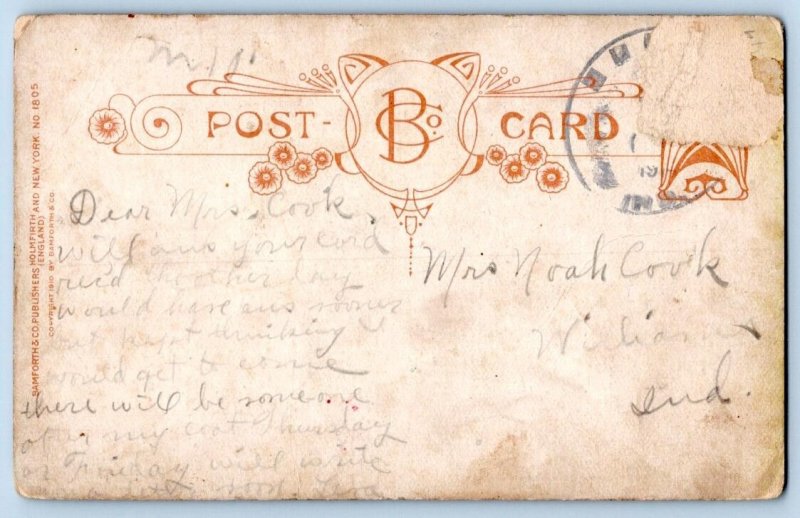 POST- B Co. CARD
BAMFORTH & CO. PUBLISHERS HOLMFIRTH AND NEW YORK. NO 1805
(ENGLAND)
COPYRIGHT 1910 BY BAMFORTH & CO.
19
Dear Mrs. Cook,
will ans your card
rec'd the other day
would have ans sooner
but kept thinking I
would get to come
there will be someone
my coat Thursday
or Friday will write
Mrs Noah Cook
Williams
Ind.